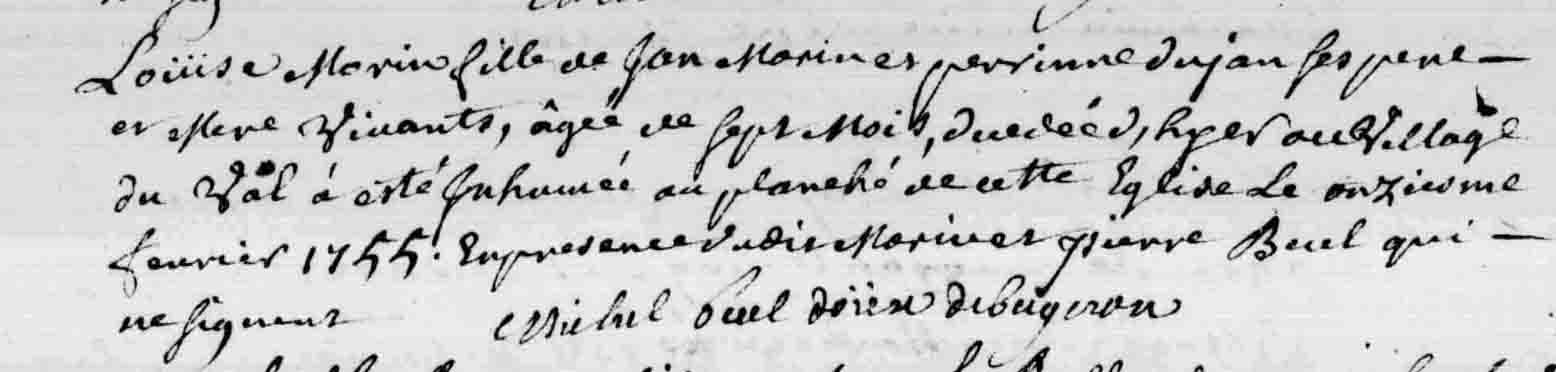 Loüise Morin fille de Jan Morin et perrinne dujan ses pere
et Mere Vivants, âgée de sept Mois, duedéé d, hyer au Village
du Vâl á esté Inhumée au planché de cette Eglise Le onziesme
fevrier 1755. En presence dudit Morin et pierre Buel qui
ne signent Michel Buel doïen de bugeron